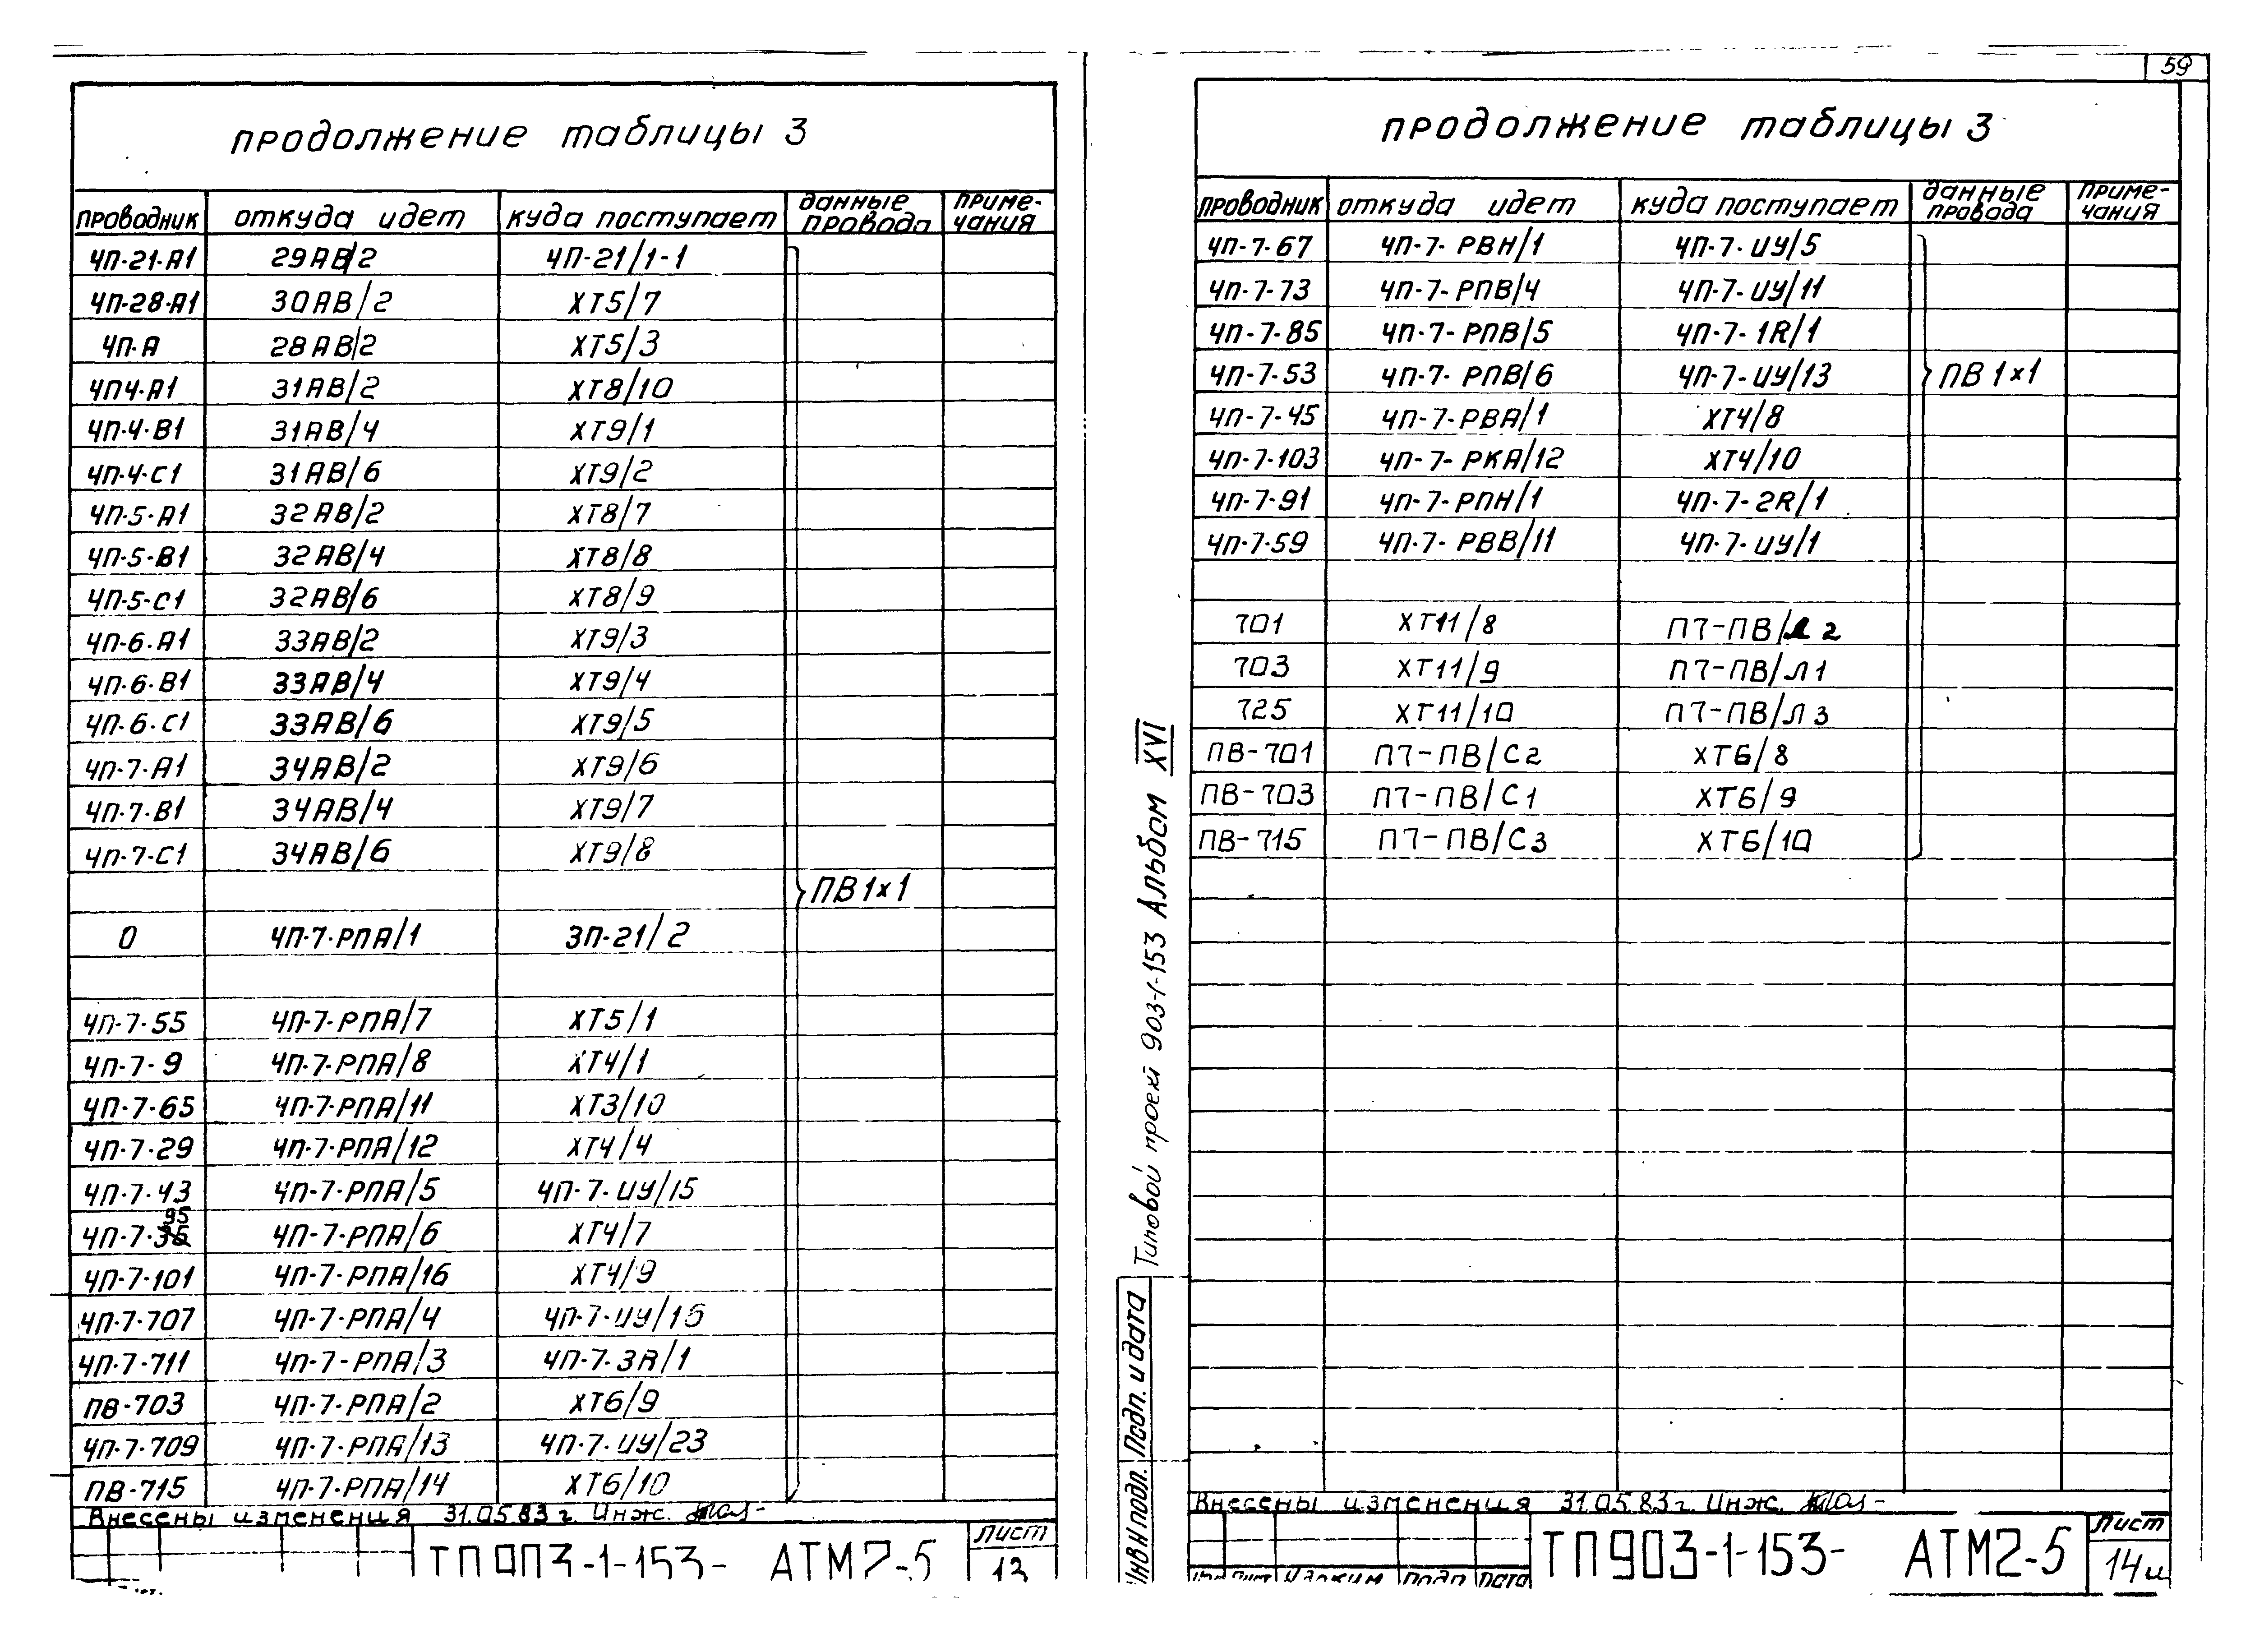 59
продолжение таблицы 3
проводник откуда идет куда поступает данные провода примечания
ЧП-21-А1 29АВ/2 ЧП-21/1-1
ЧП-28-А1 30АВ/2 ХТ5/7
ЧП-А 28АВ/2 ХТ5/3
ЧП4-А1 31АВ/2 ХТ8/10
ЧП-4-В1 31АВ/4 ХТ9/1
ЧП-4-С1 31АВ/6 ХТ9/2
ЧП-5-А1 32АВ/2 ХТ8/7
ЧП-5-В1 32АВ/4 ХТ8/8
ЧП-5-С1 32АВ/6 ХТ8/9
ЧП-6-А1 33АВ/2 ХТ9/3
ЧП-6-В1 33АВ/4 ХТ9/4
ЧП-6-С1 33АВ/6 ХТ9/5
ЧП-7-А1 34АВ/2 ХТ9/6
ЧП-7-В1 34АВ/4 ХТ9/7
ЧП-7-С1 34АВ/6 ХТ9/8
ПВ1х1
0 ЧП-7-РПА/1 3П-21/2
ЧП-7-55 ЧП-7-РПА/7 ХТ5/1
ЧП-7-9 ЧП-7-РПА/8 ХТ4/1
ЧП-7-65 ЧП-7-РПА/11 ХТ3/10
ЧП-7-29 ЧП-7-РПА/12 ХТ4/4
ЧП-7-43 ЧП-7-РПА/5 ЧП-7-ИУ/15
ЧП-7-95 ЧП-7-РПА/6 ХТ4/7
ЧП-7-101 ЧП-7-РПА/16 ХТ4/9
ЧП-7-707 ЧП-7-РПА/4 ЧП-7-ИУ/16
ЧП-7-711 ЧП-7-РПА/3 ЧП-7-3R/1
ПВ-703 ЧП-7-РПА/2 ХТ6/9
ЧП-7-709 ЧП-7-РПА/13 ЧП-7-ИУ/23
ПВ-715 ЧП-7-РПА/14 ХТ6/10
Внесены изменения 31.05.83 г. Инж.
ТП903-1-153- АТМ2-5
Лист
13
продолжение таблицы 3
проводник откуда идет куда поступает данные провода примечания
ЧП-7-67 ЧП-7-РВН/1 ЧП-7-ИУ/5
ЧП-7-73 ЧП-7-РПВ/4 ЧП-7-ИУ/11
ЧП-7-85 ЧП-7-РПВ/5 ЧП-7-1R/1
ЧП-7-53 ЧП-7-РПВ/6 ЧП-7-ИУ/13 ПВ1х1
ЧП-7-45 ЧП-7-РВА/1 ХТ4/8
ЧП-7-103 ЧП-7-РКА/12 ХТ4/10
ЧП-7-91 ЧП-7-РПН/1 ЧП-7-2R/1
ЧП-7-59 ЧП-7-РВВ/11 ЧП-7-ИУ/1
701 ХТ11/8 П7-ПВ/Л2
703 ХТ11/9 П7-ПВ/Л1
725 ХТ11/10 П7-ПВ/Л3
ПВ-701 П7-ПВ/С2 ХТ6/8
ПВ-703 П7-ПВ/С1 ХТ6/9
ПВ-715 П7-ПВ/С3 ХТ6/10
Внесены изменения 31.05.83 г. Инж.
ТП903-1-153- АТМ2-5
Лист
14и
Типовой проект 903-1-153 Альбом XVI
Инв N подл. Подп. и дата